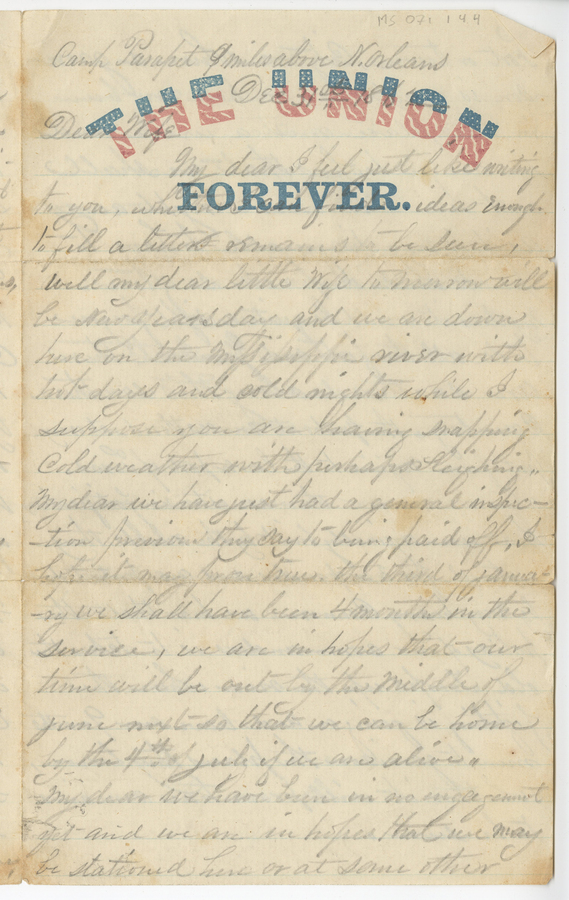 MS 071 1 4 4
Camp Parapet 9 miles above N. Orleans
Dec 31st 186
THE UNION
Dear Wife
My dear I feel just like writing
FOREVER.
to you, ideas enough
to fill a letter remains to be seen,
well my dear little Wife to morrow will
be New Years day and we are down
here on the river with
hot days and cold nights while I
suppose you are having snapping
cold weather with perhaps sleighing,,
My dear we have just had a general inspec-
-tion previous they say to being paid off, I
hope it may prove true. the third of janua-
-ry we shall have been 4 months in the
service, we are in hopes that our
time will be out by the middle of
june next so that we can be home
by the 4th of july if we are alive,,
My dear we have been in no engagement
yet and we are in hopes that we may
be stationed here or at some other